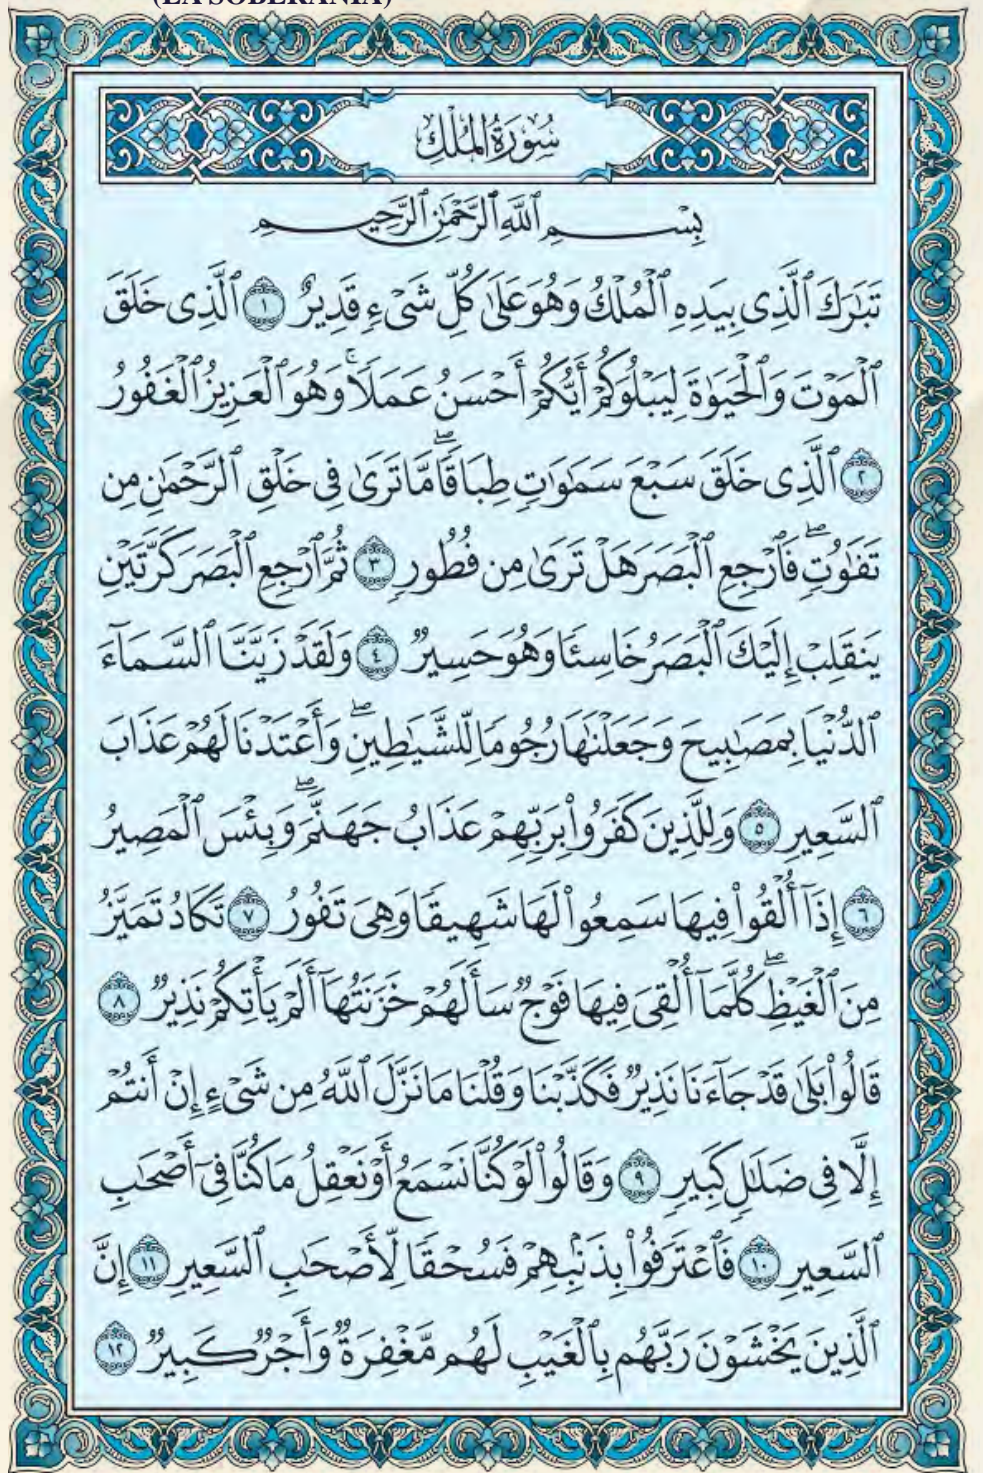 (LA SOBERANÍA)
سُورَةُ المُلْكِ
بِسْمِ ٱللَّهِ ٱلرَّحْمَٰنِ ٱلرَّحِيمِ
تَبَٰرَكَ ٱلَّذِى بِيَدِهِ ٱلْمُلْكُ وَهُوَ عَلَىٰ كُلِّ شَىْءٍ قَدِيرٌ ١ ٱلَّذِى خَلَقَ
ٱلْمَوْتَ وَٱلْحَيَوٰةَ لِيَبْلُوَكُمْ أَيُّكُمْ أَحْسَنُ عَمَلًا ۚ وَهُوَ ٱلْعَزِيزُ ٱلْغَفُورُ
٢ ٱلَّذِى خَلَقَ سَبْعَ سَمَٰوَٰتٍ طِبَاقًا ۖ مَّا تَرَىٰ فِى خَلْقِ ٱلرَّحْمَٰنِ مِن
تَفَٰوُتٍ ۖ فَٱرْجِعِ ٱلْبَصَرَ هَلْ تَرَىٰ مِن فُطُورٍ ٣ ثُمَّ ٱرْجِعِ ٱلْبَصَرَ كَرَّتَيْنِ
يَنقَلِبْ إِلَيْكَ ٱلْبَصَرُ خَاسِئًا وَهُوَ حَسِيرٌ ٤ وَلَقَدْ زَيَّنَّا ٱلسَّمَآءَ
ٱلدُّنْيَا بِمَصَٰبِيحَ وَجَعَلْنَٰهَا رُجُومًا لِّلشَّيَٰطِينِ ۖ وَأَعْتَدْنَا لَهُمْ عَذَابَ
ٱلسَّعِيرِ ٥ وَلِلَّذِينَ كَفَرُوا۟ بِرَبِّهِمْ عَذَابُ جَهَنَّمَ ۖ وَبِئْسَ ٱلْمَصِيرُ
٦ إِذَآ أُلْقُوا۟ فِيهَا سَمِعُوا۟ لَهَا شَهِيقًا وَهِىَ تَفُورُ ٧ تَكَادُ تَمَيَّزُ
مِنَ ٱلْغَيْظِ ۖ كُلَّمَآ أُلْقِىَ فِيهَا فَوْجٌ سَأَلَهُمْ خَزَنَتُهَآ أَلَمْ يَأْتِكُمْ نَذِيرٌ ٨
قَالُوا۟ بَلَىٰ قَدْ جَآءَنَا نَذِيرٌ فَكَذَّبْنَا وَقُلْنَا مَا نَزَّلَ ٱللَّهُ مِن شَىْءٍ إِنْ أَنتُمْ
إِلَّا فِى ضَلَٰلٍ كَبِيرٍ ٩ وَقَالُوا۟ لَوْ كُنَّا نَسْمَعُ أَوْ نَعْقِلُ مَا كُنَّا فِىٓ أَصْحَٰبِ
ٱلسَّعِيرِ ١٠ فَٱعْتَرَفُوا۟ بِذَنۢبِهِمْ فَسُحْقًا لِّأَصْحَٰبِ ٱلسَّعِيرِ ١١ إِنَّ
ٱلَّذِينَ يَخْشَوْنَ رَبَّهُم بِٱلْغَيْبِ لَهُم مَّغْفِرَةٌ وَأَجْرٌ كَبِيرٌ ١٢